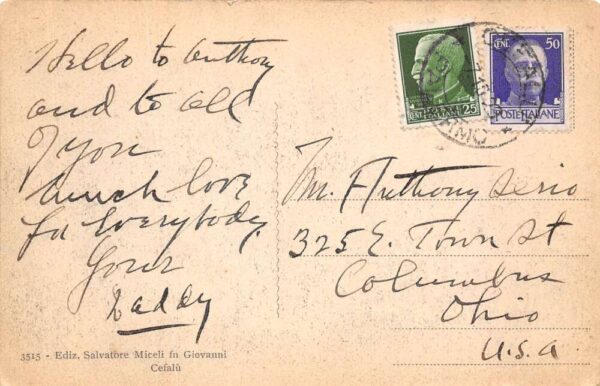 Hello to Anthony
and to all
of you
much love
for Everybody.
Your
Daddy
3515 - Ediz. Salvatore Miceli fu Giovanni
Cefalù
CENT. 25
CENT. 50
POSTE ITALIANE
Mr. Anthony Serio
325 E. Town St
Columbus
Ohio
U.S.A.